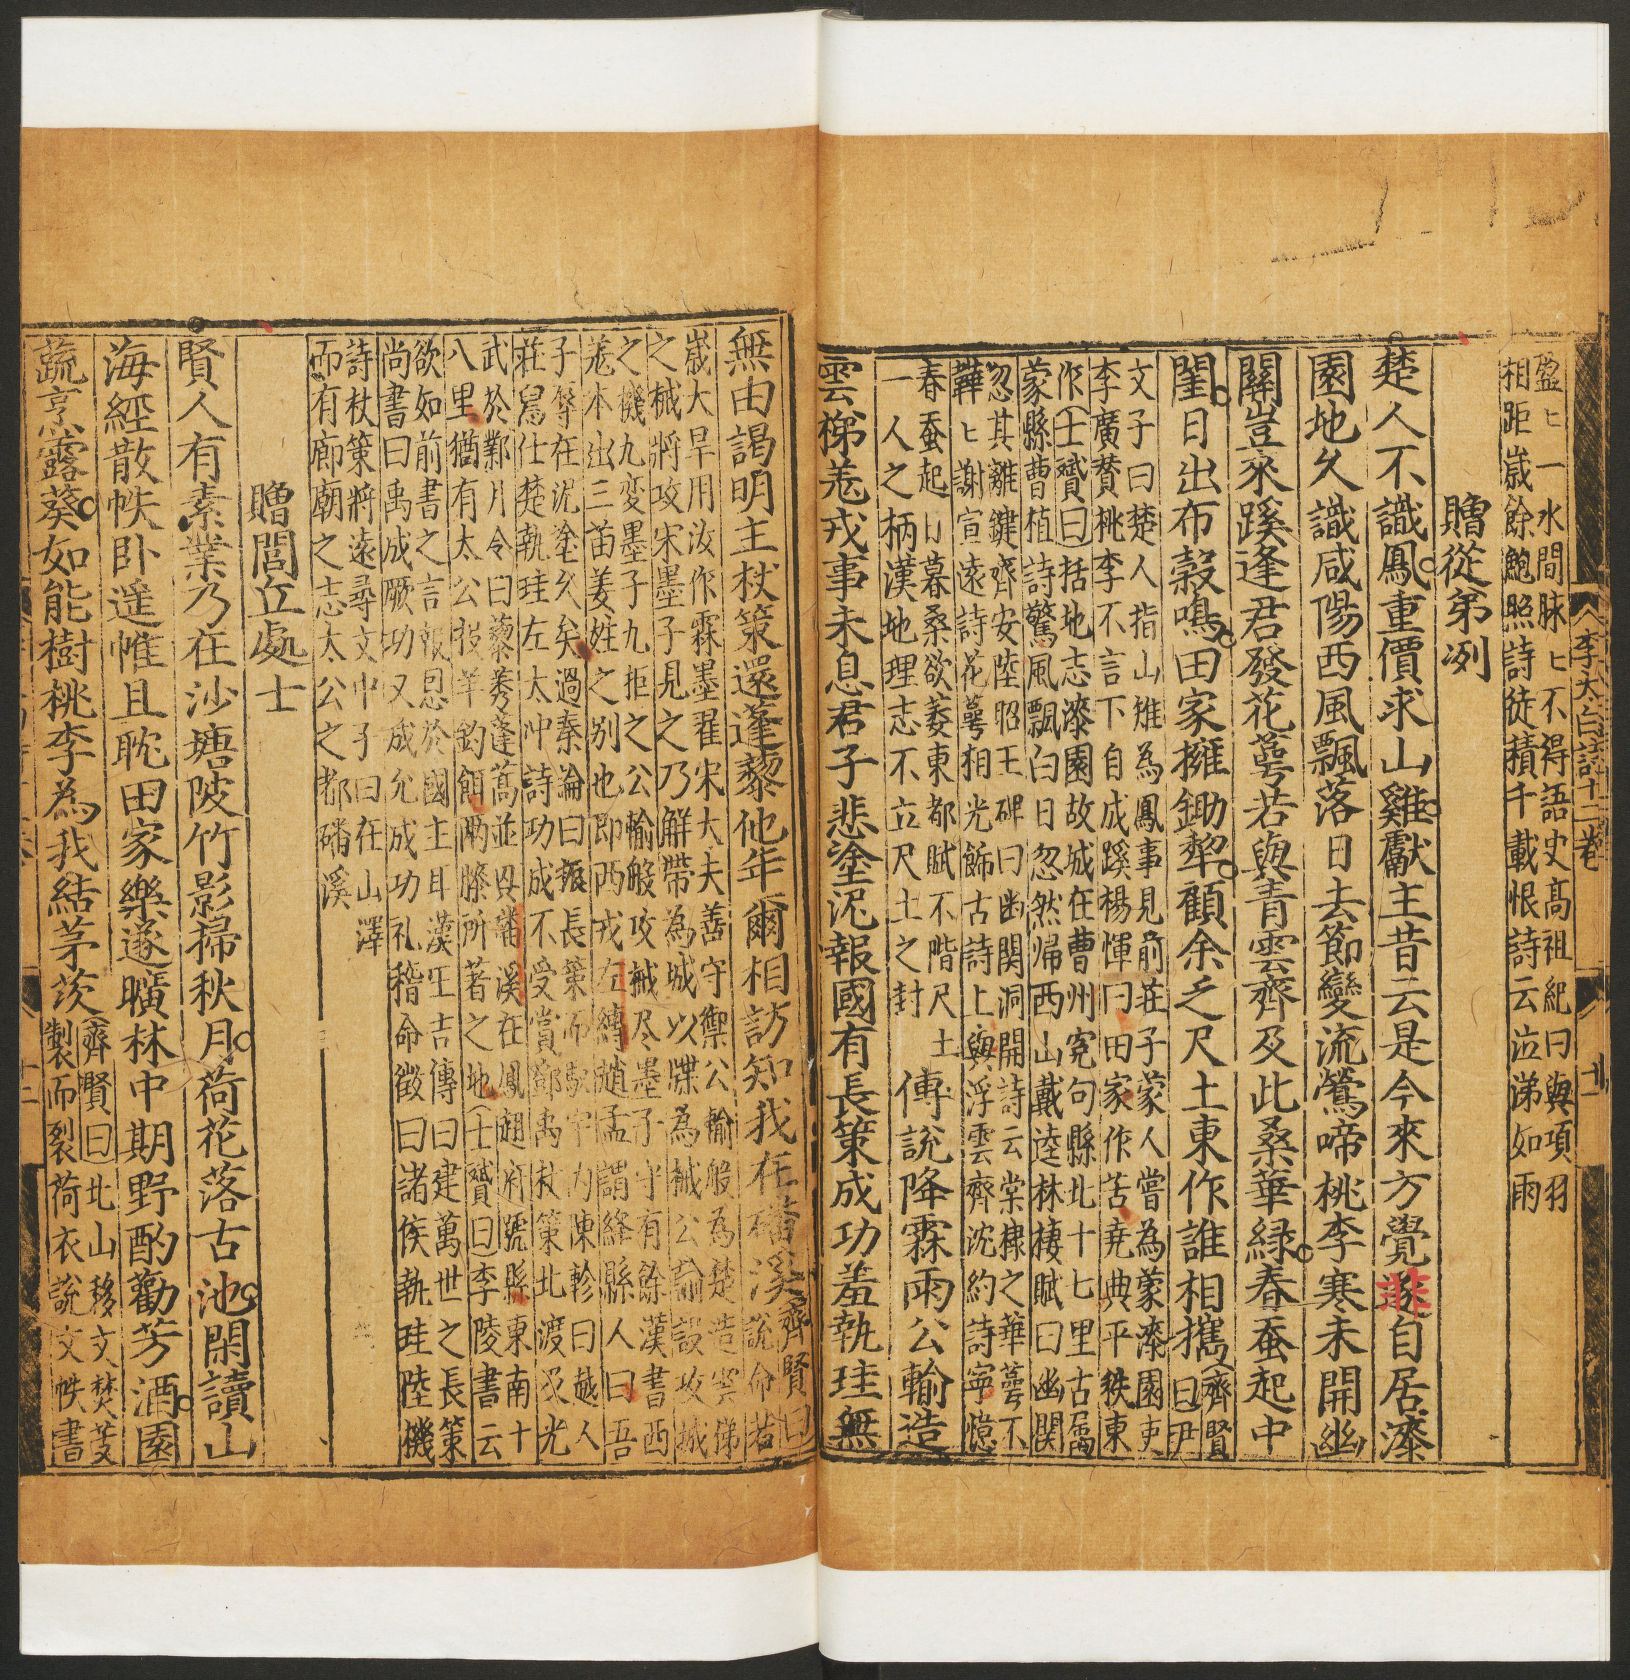 盈〻一水間脉〻不得語史高祖紀曰與項羽
相距嵗餘鮑照詩徒積千載恨詩云泣涕如雨
贈從弟冽
楚人不識鳳重價求山雞獻主昔云是今來方覺迷自居漆
園地久識咸陽西風飄落日去節變流鶯啼桃李寒未開幽
關豈來蹊逢君發花萼若與青雲齊及此桑葉緑春蚕起中
閨日出布穀鳴田家擁鋤犂顧余乏尺土東作誰相攜
齊賢
曰尹
文子曰楚人指山雉為鳳事見前荘子蒙人嘗為蒙漆園吏
李廣賛桃李不言下自成蹊楊惲曰田家作苦尭典平秩東
作士贇曰括地志漆園故城在曹州寃句縣北十七里古屬
蒙縣曹植詩驚風飄白日忽然帰西山戴逵林棲賦曰幽関
忽其離鍵齊安陸昭王碑曰幽関洞開詩云棠棣之華萼不
韡〻謝宣遠詩花萼相光飾古詩上與浮雲齊沈約詩寧憶
春蚕起日暮桑欲萎東都賦不階尺土
一人之柄漢地理志不立尺土之封
傳說降霖雨公輸造
雲梯羌戎事未息君子悲塗泥報國有長策成功羞執珪無
李太白詩十二巻
十一
無由謁明主杖策還蓬藜他年爾相訪知我在磻溪
齊賢曰
說命若
嵗大旱用汝作霖墨翟宋大夫善守禦公輸般為楚造雲梯
之械將攻宋墨子見之乃解帶為城以牒為械公輸設攻城
之機九変墨子九拒之公輸般攻械尽墨子守有餘漢書西
羌本出三苗姜姓之别也即西戎左縳趙孟謂絳縣人曰吾
子辱在泥塗久矣過秦論曰振長策而馭宇内陳軫曰越人
荘舄仕楚執珪左太冲詩功成不受賞鄧禹杖策北渡及光
武於鄴月令曰藜莠蓬蒿並興磻溪在鳳翔府虢縣東南十
八里猶有太公投竿釣餌兩膝所著之地士贇曰李陵書云
欲如前書之言報恩於國主耳漢王吉傳曰建萬世之長策
尚書曰禹成厥功又成允成功礼稽命徴曰諸侯執珪陸機
詩杖策將遠尋文中子曰在山澤
而有廊廟之志太公之都磻溪
贈閭丘處士
賢人有素業乃在沙塘陂竹影掃秋月荷花落古池閑讀山
海經散帙卧遥帷且耽田家樂遂曠林中期野酌勸芳酒園
蔬烹露葵如能樹桃李為我結茅茨
齊賢曰北山移文焚芰
製而裂荷衣說文帙書